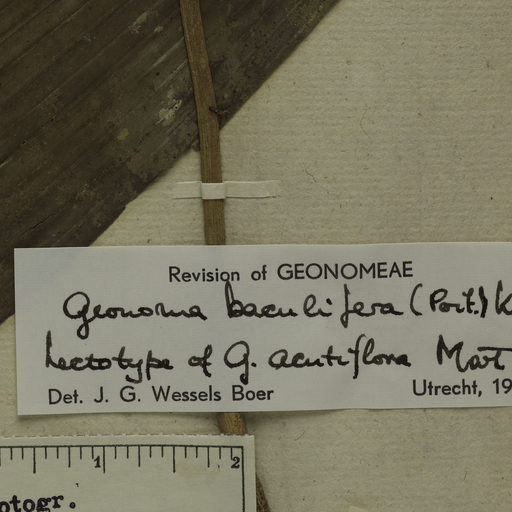 Revision of GEONOMEAE
Geonoma baculifera (Poit.) K
Lectotype of G. acutiflora Mart
Det. J. G. Wessels Boer
Utrecht, 19
1 2
otogr.